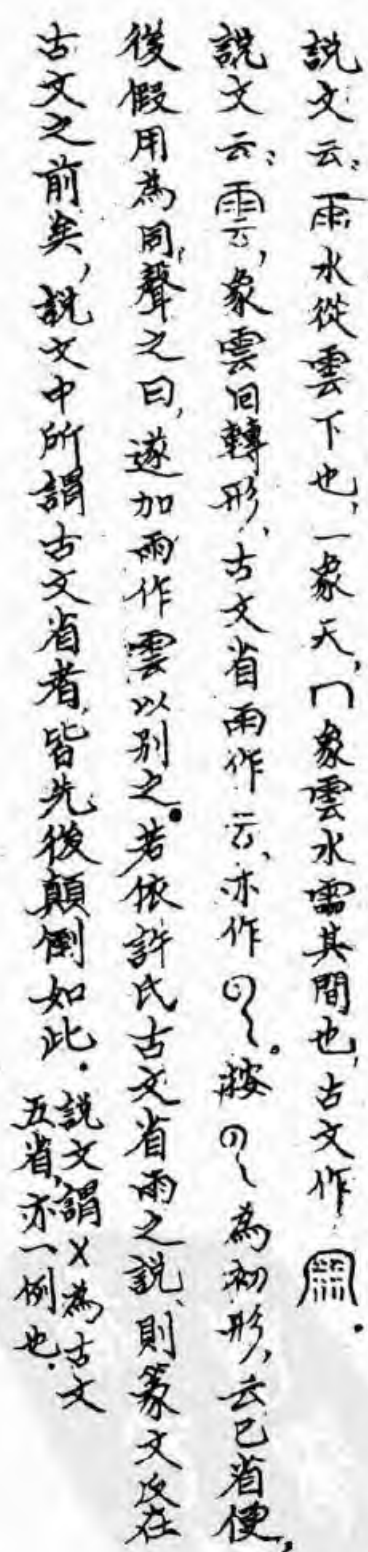 說文云：雨水從雲下也，一象天，冂象雲水霝其間也，古文作𠕲。
說文云：雲，象雲回轉形，古文省雨作云，亦作𠄏。按𠄏為初形，云已省便，
後假用為同聲之曰，遂加雨作雲以別之。若依許氏古文省雨之說，則篆文反在
古文之前矣，說文中所謂古文省者，皆先後顛倒如此。說文謂㐅為古文
五省，亦一例也。